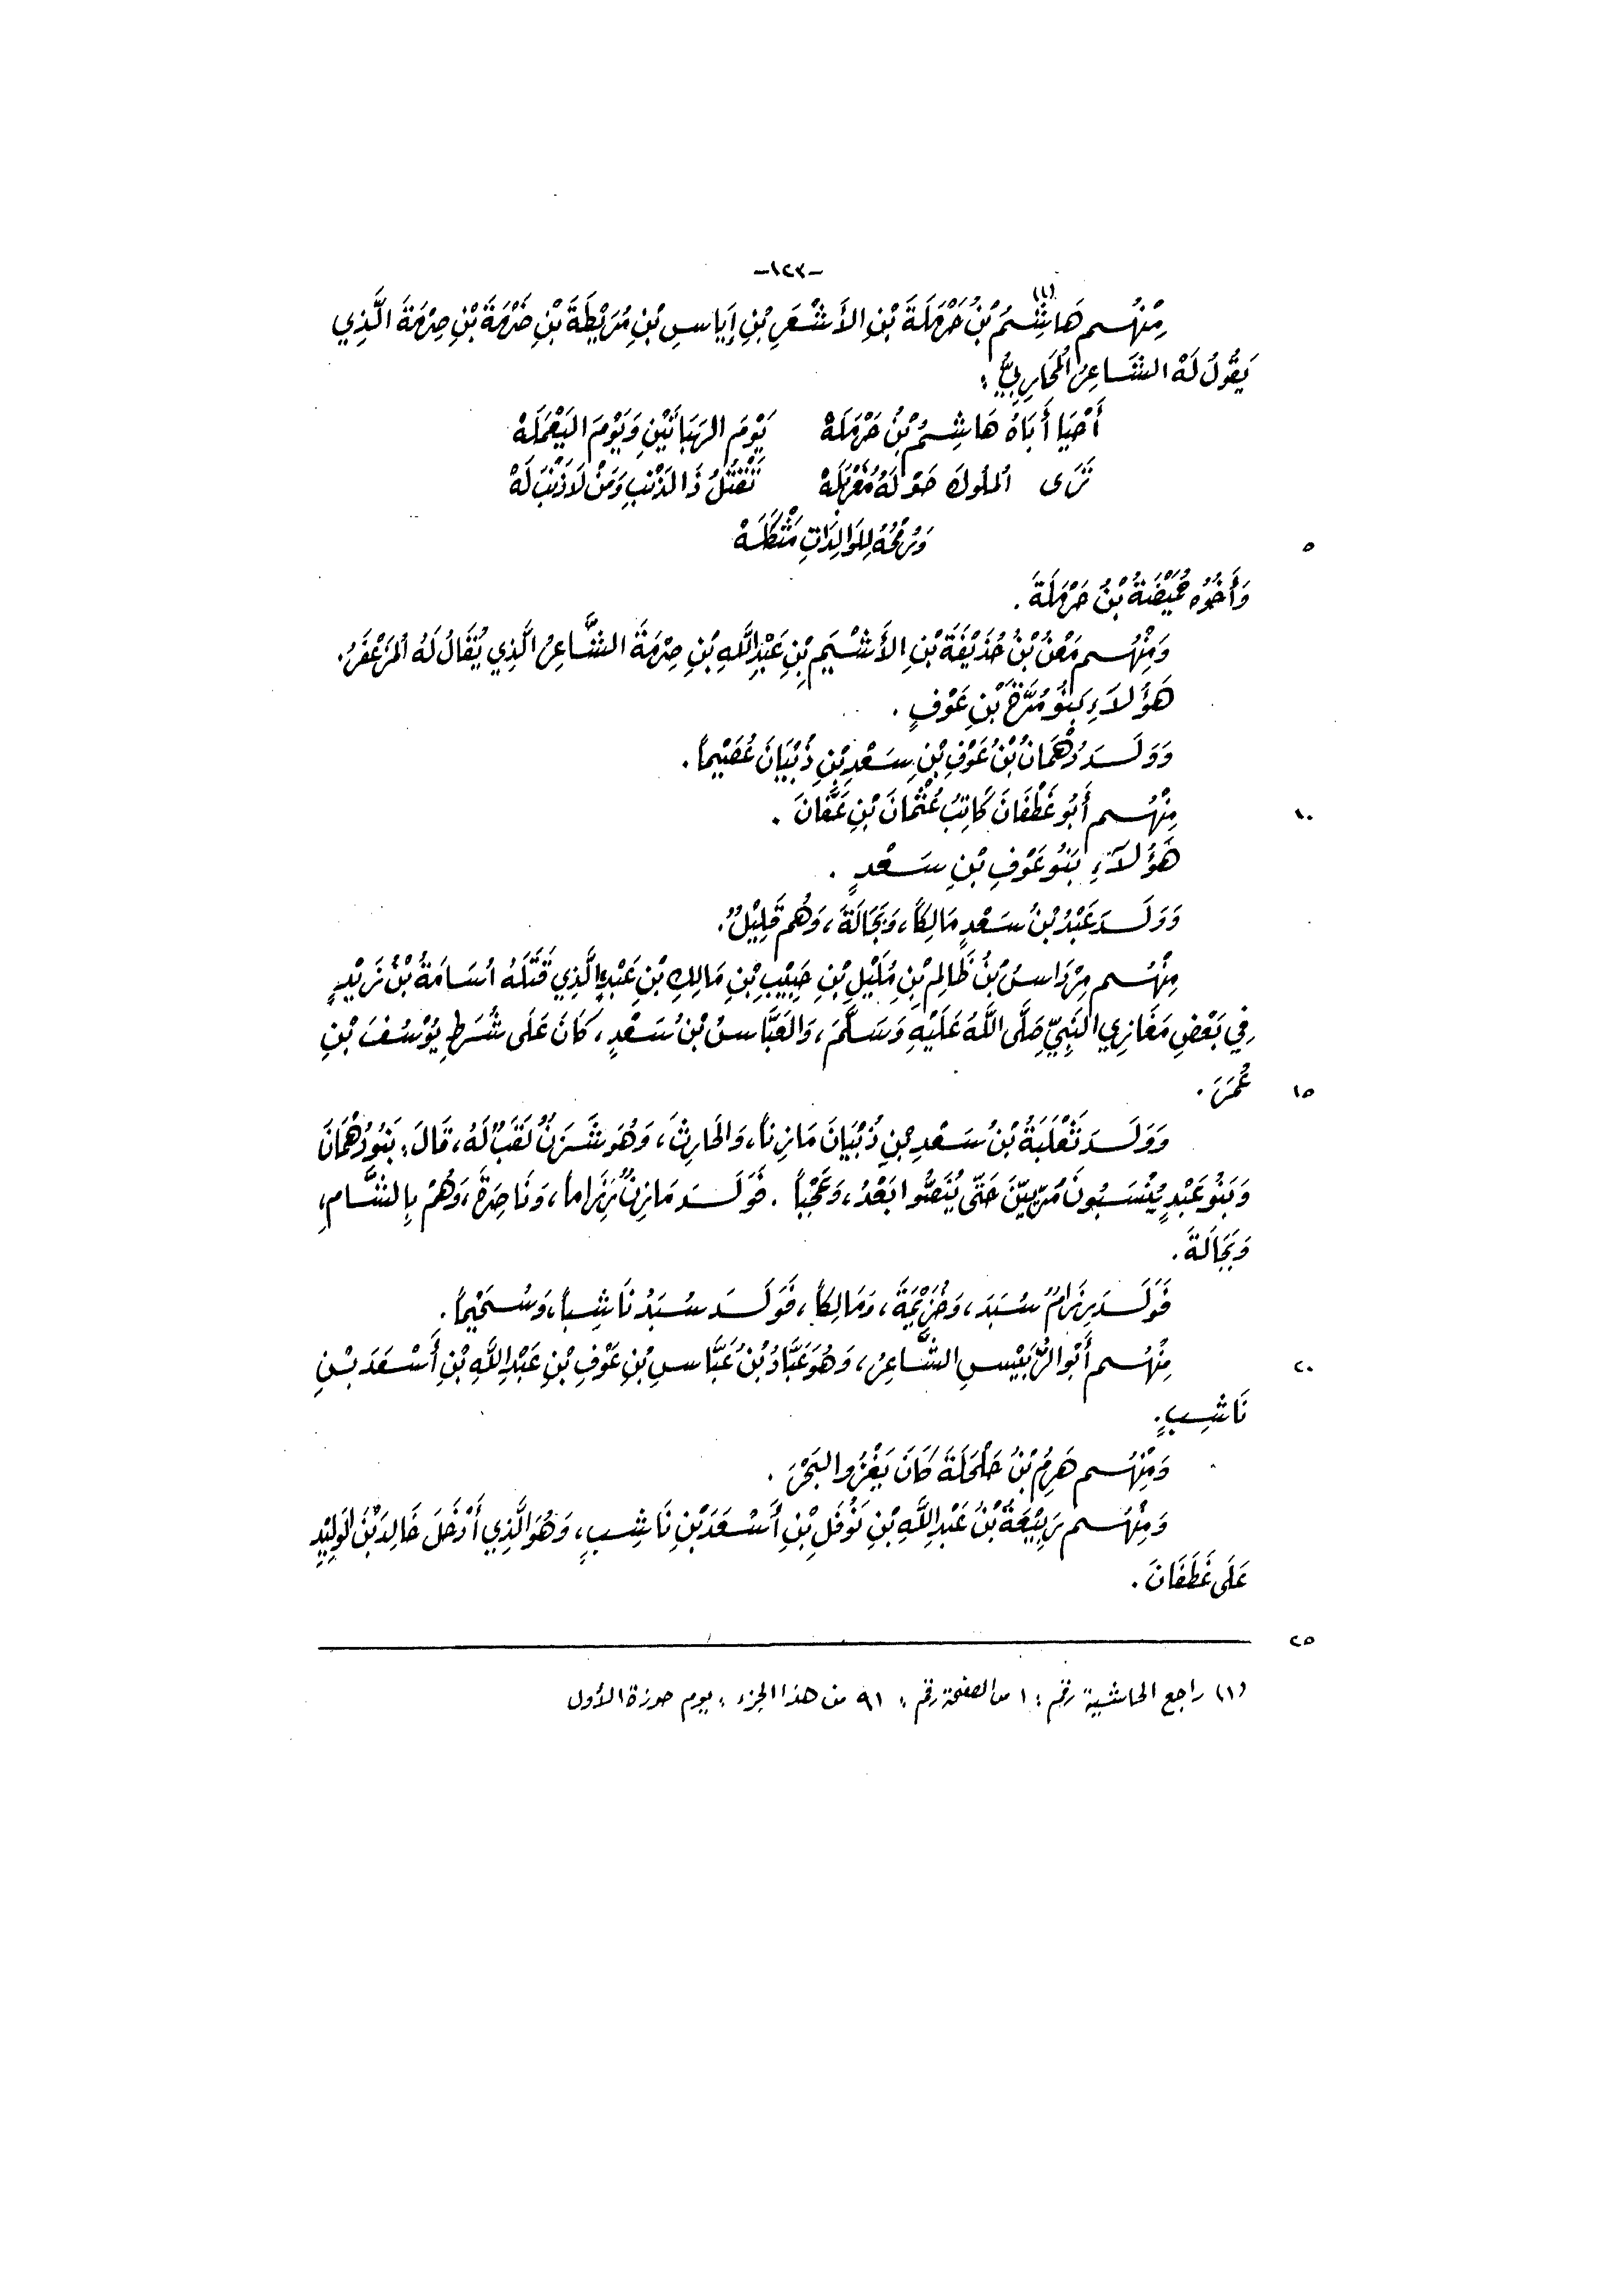 -١٢٣-
مِنْهُم هَاشِمُ(١) بْنُ حَرْمَلَةَ بْنِ الأَشْعَرِ بْنِ إِيَاسِ بْنِ مُرَيْطَةَ بْنِ ضَرْمَةَ بْنِ صِرْمَةَ الَّذِي
يَقُولُ لَهُ الشَّاعِرُ المُحَارِبِيُّ :
أَحْيَا أَبَاهُ هَاشِمُ بْنُ حَرْمَلَهْ يَوْمَ الهَبَاتَيْنِ وَيَوْمَ اليَعْمَلَهْ
تَرَى المُلُوكَ حَوْلَهُ مُغَرْبَلَهْ تَقْتُلُ ذَا الذَّنْبِ وَمَنْ لَا ذَنْبَ لَهْ
وَرُمْحُهُ لِلوَالِدَاتِ مَثْكَلَهْ
٥
وَأَخُوهُ حُمَيْضَةُ بْنُ حَرْمَلَةَ .
وَمِنْهُم مَعْنُ بْنُ حُذَيْفَةَ بْنِ الأَشْيَمِ بْنِ عَبْدِ اللَّهِ بْنِ صِرْمَةَ الشَّاعِرُ الَّذِي يُقَالُ لَهُ المُزَعْفَرُ.
هَؤُلَاءِ بَنُو مُرَّةَ بْنِ عَوْفٍ .
وَوَلَدَ دُهْمَانُ بْنُ عَوْفِ بْنِ سَعْدِ بْنِ ذُبْيَانَ عُصَيْماً .
مِنْهُم أَبُو غَطَفَانَ كَاتِبُ عُثْمَانَ بْنِ عَفَّانَ .
١٠
هَؤُلَاءِ بَنُو عَوْفِ بْنِ سَعْدٍ .
وَوَلَدَ عَبْدُ بْنُ سَعْدٍ مَالِكاً، وَبَجَالَةَ، وَهُم قَلِيْلٌ .
مِنْهُم مِرْدَاسُ بْنُ ظَالِمِ بْنِ مُلَيْلِ بْنِ حَبِيْبِ بْنِ مَالِكِ بْنِ عَبْدٍ الَّذِي قَتَلَهُ أُسَامَةُ بْنُ زَيْدٍ
فِي بَعْضِ مَغَازِي النَّبِيِّ صَلَّى اللَّهُ عَلَيْهِ وَسَلَّمَ، وَالعَبَّاسُ بْنُ سَعْدٍ، كَانَ عَلَى شُرَطِ يُوْسُفَ بْنِ
عُمَرَ .
١٥
وَوَلَدَ ثَعْلَبَةُ بْنُ سَعْدِ بْنِ ذُبْيَانَ مَازِناً، وَالحَارِثَ، وَهُوَ شَزَنٌ لَقَبٌ لَهُ، قَالَ: بَنُو دُهْمَانَ
وَبَنُو عَبْدٍ يُنْسَبُونَ مُرِّيِّيْنَ حَتَّى يُنَصُّوا بَعْدُ، وَعَجْباً . فَوَلَدَ مَازِنٌ رِزَاماً، وَنَاصِرَةَ، وَهُمْ بِالشَّامِ،
وَبَجَالَةَ .
فَوَلَدَ رِزَامٌ سُبَدَ، وَخُزَيْمَةَ، وَمَالِكاً، فَوَلَدَ سُبَدُ نَاشِباً، وَسُحَيْماً .
مِنْهُم أَبُو الرُّبَيْسِ الشَّاعِرُ، وَهُوَ عَبَّادُ بْنُ عَبَّاسِ بْنِ عَوْفِ بْنِ عَبْدِ اللَّهِ بْنِ أَسْعَدَ بْنِ
٢٠
نَاشِبٍ .
وَمِنْهُم هَرِمُ بْنُ حَلْحَلَةَ كَانَ يَغْزُو البَحْرَ .
وَمِنْهُم رَبِيْعَةُ بْنُ عَبْدِ اللَّهِ بْنِ نَوْفَلِ بْنِ أَسْعَدَ بْنِ نَاشِبٍ، وَهُوَ الَّذِي أَدْخَلَ خَالِدَ بْنَ الوَلِيْدِ
عَلَى غَطَفَانَ .
٢٥
(١) راجع الحاشية رقم : ١ من الصفحة رقم : ٩١ من هذا الجزء ، يوم حوزة الأول